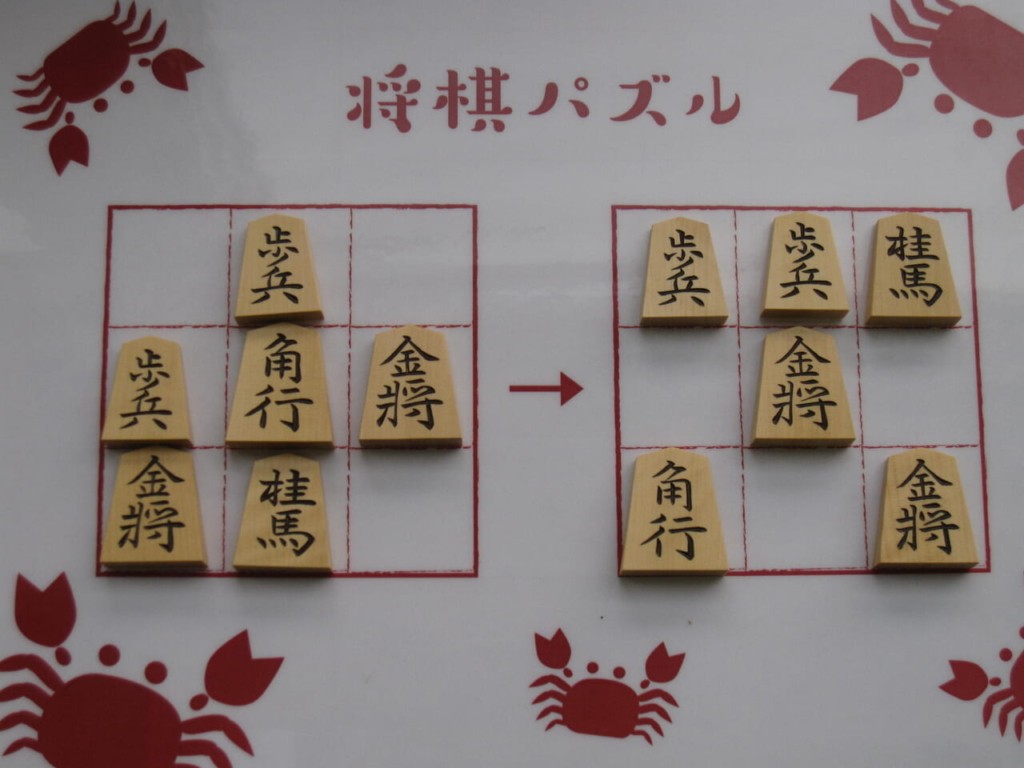 将棋パズル
歩兵
歩兵
角行
金将
金将
桂馬
歩兵
歩兵
桂馬
金将
角行
金将